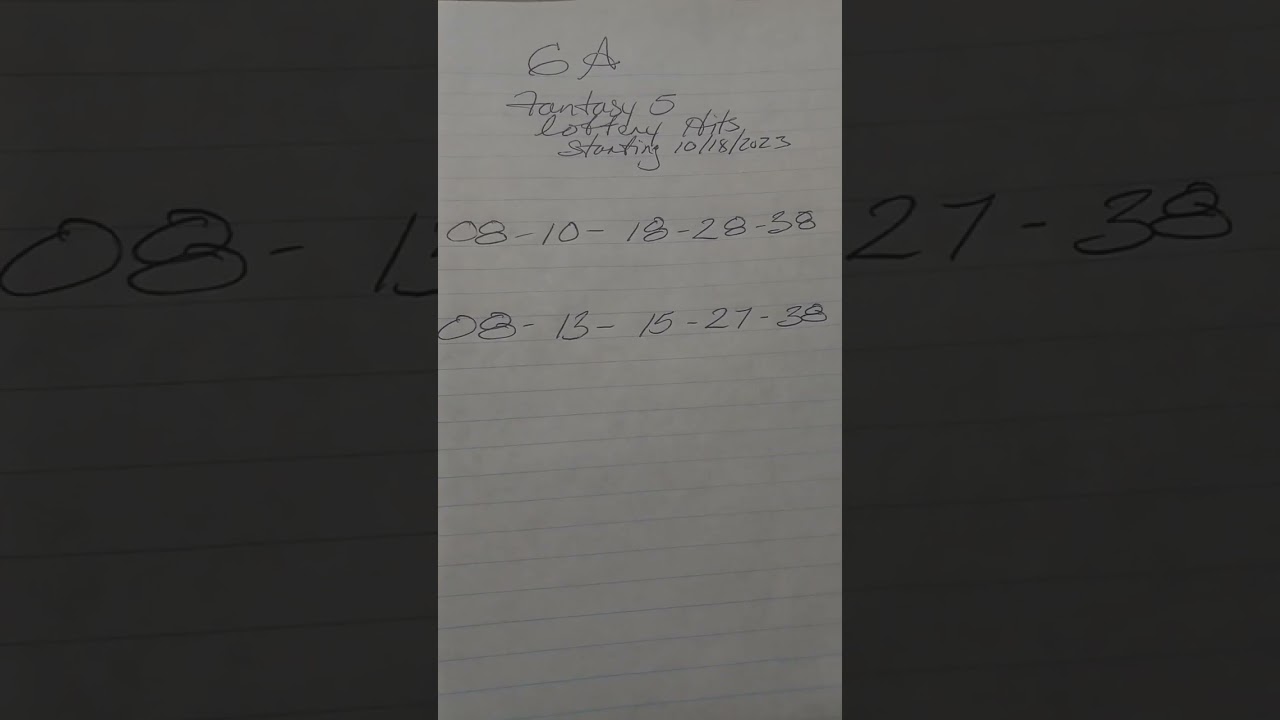 GA
Fantasy 5
lottery Hits
Starting 10/18/2023
08-10-18-28-38
08-13-15-27-38